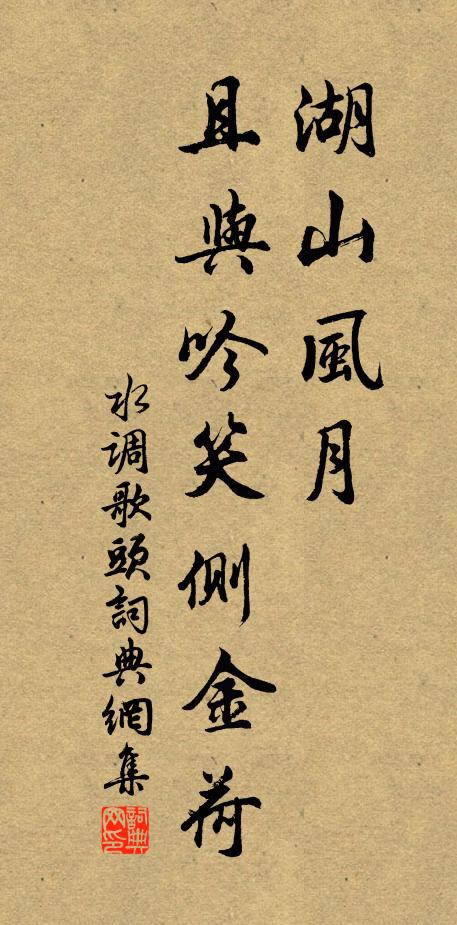 湖山風月
且與吟笑側金荷
水調歌頭詞典網集
詞典
网印